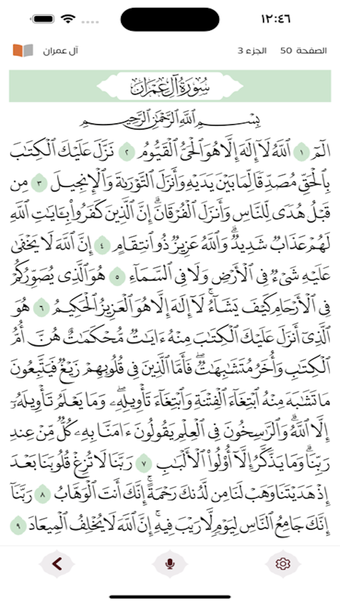 ١٢:٤٦
الصفحة 50 الجزء 3 آل عمران
سُورَةُ آلِ عِمْرَانَ
بِسْمِ ٱللَّهِ ٱلرَّحْمَٰنِ ٱلرَّحِيمِ
الٓمٓ ١ ٱللَّهُ لَآ إِلَٰهَ إِلَّا هُوَ ٱلْحَىُّ ٱلْقَيُّومُ ٢ نَزَّلَ عَلَيْكَ ٱلْكِتَٰبَ
بِٱلْحَقِّ مُصَدِّقًا لِّمَا بَيْنَ يَدَيْهِ وَأَنزَلَ ٱلتَّوْرَىٰةَ وَٱلْإِنجِيلَ ٣ مِن
قَبْلُ هُدًى لِّلنَّاسِ وَأَنزَلَ ٱلْفُرْقَانَ ۗ إِنَّ ٱلَّذِينَ كَفَرُوا۟ بِـَٔايَٰتِ ٱللَّهِ
لَهُمْ عَذَابٌ شَدِيدٌ ۗ وَٱللَّهُ عَزِيزٌ ذُو ٱنتِقَامٍ ٤ إِنَّ ٱللَّهَ لَا يَخْفَىٰ
عَلَيْهِ شَىْءٌ فِى ٱلْأَرْضِ وَلَا فِى ٱلسَّمَآءِ ٥ هُوَ ٱلَّذِى يُصَوِّرُكُمْ
فِى ٱلْأَرْحَامِ كَيْفَ يَشَآءُ ۚ لَآ إِلَٰهَ إِلَّا هُوَ ٱلْعَزِيزُ ٱلْحَكِيمُ ٦ هُوَ
ٱلَّذِىٓ أَنزَلَ عَلَيْكَ ٱلْكِتَٰبَ مِنْهُ ءَايَٰتٌ مُّحْكَمَٰتٌ هُنَّ أُمُّ
ٱلْكِتَٰبِ وَأُخَرُ مُتَشَٰبِهَٰتٌ ۖ فَأَمَّا ٱلَّذِينَ فِى قُلُوبِهِمْ زَيْغٌ فَيَتَّبِعُونَ
مَا تَشَٰبَهَ مِنْهُ ٱبْتِغَآءَ ٱلْفِتْنَةِ وَٱبْتِغَآءَ تَأْوِيلِهِۦ ۗ وَمَا يَعْلَمُ تَأْوِيلَهُۥٓ
إِلَّا ٱللَّهُ ۗ وَٱلرَّٰسِخُونَ فِى ٱلْعِلْمِ يَقُولُونَ ءَامَنَّا بِهِۦ كُلٌّ مِّنْ عِندِ
رَبِّنَا ۗ وَمَا يَذَّكَّرُ إِلَّآ أُو۟لُوا۟ ٱلْأَلْبَٰبِ ٧ رَبَّنَا لَا تُزِغْ قُلُوبَنَا بَعْدَ
إِذْ هَدَيْتَنَا وَهَبْ لَنَا مِن لَّدُنكَ رَحْمَةً ۚ إِنَّكَ أَنتَ ٱلْوَهَّابُ ٨ رَبَّنَآ
إِنَّكَ جَامِعُ ٱلنَّاسِ لِيَوْمٍ لَّا رَيْبَ فِيهِ ۚ إِنَّ ٱللَّهَ لَا يُخْلِفُ ٱلْمِيعَادَ ٩